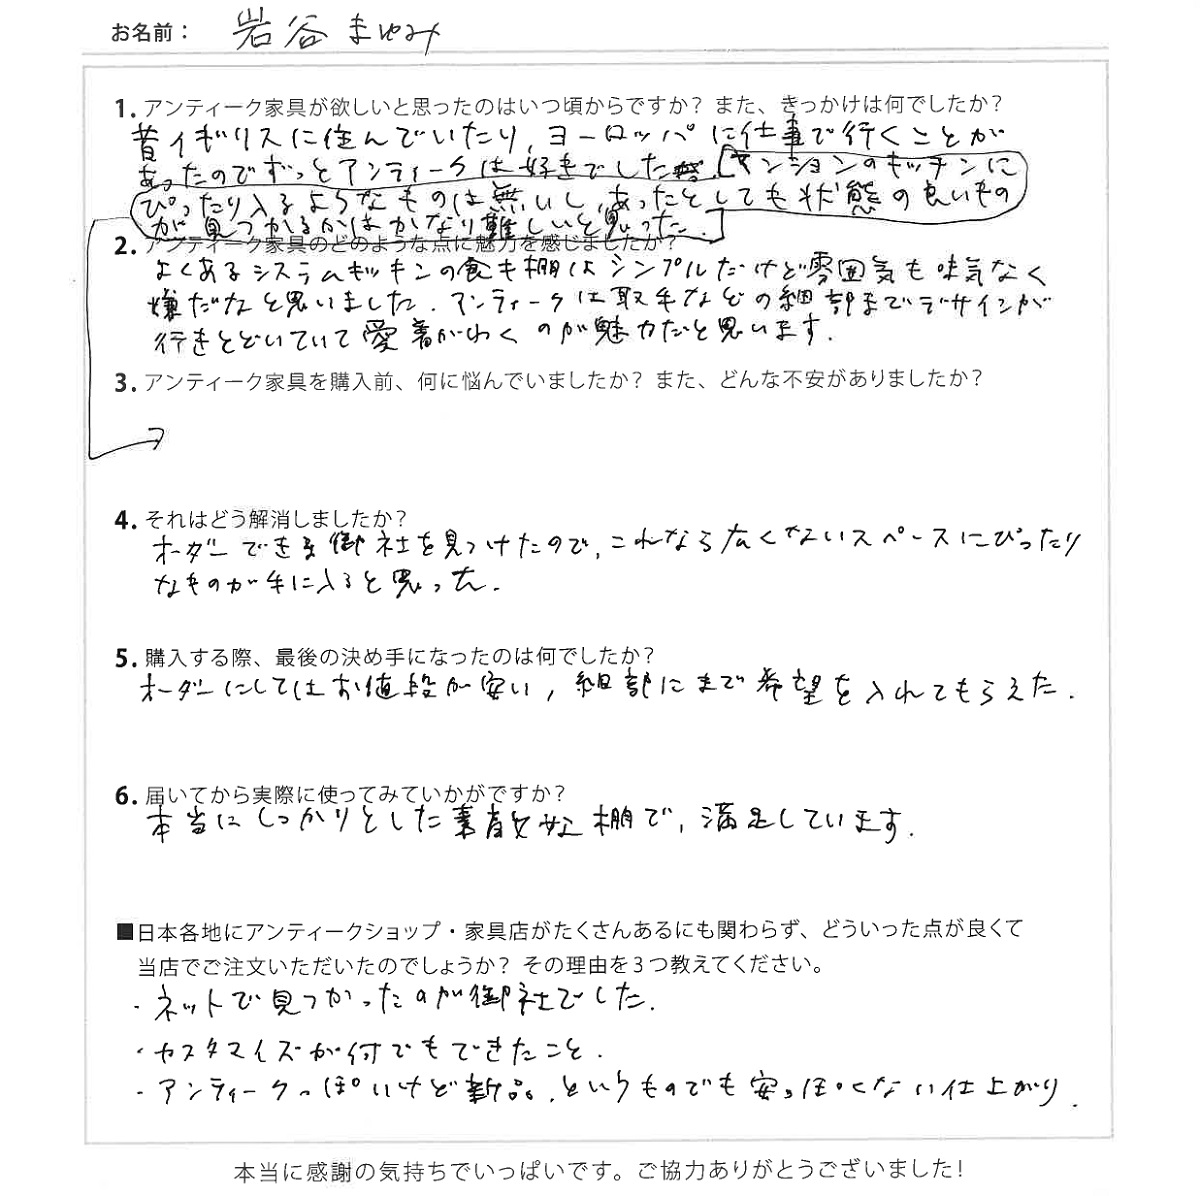 お名前： 岩谷 まゆみ
1. アンティーク家具が欲しいと思ったのはいつ頃からですか？ また、きっかけは何でしたか？
昔イギリスに住んでいたり、ヨーロッパに仕事で行くことが
あったのでずっとアンティークは好きでした。マンションのキッチンに
ぴったり入るようなものは無いし、あったとしても状態の良いもの
が見つかるかはかなり難しいと思った。
2. アンティーク家具のどのような点に魅力を感じましたか？
よくあるシステムキッチンの食キ棚はシンプルだけど雰囲気も味気なく
嫌だなと思いました。アンティークは取手などの細部までデザインが
行きとどいていて愛着がわくのが魅力だと思います。
3. アンティーク家具を購入前、何に悩んでいましたか？ また、どんな不安がありましたか？
→
4. それはどう解消しましたか？
オーダーできる御社を見つけたので、これなら広くないスペースにぴったり
なものが手に入ると思った。
5. 購入する際、最後の決め手になったのは何でしたか？
オーダーにしてはお値段が安い、細部にまで希望を入れてもらえた。
6. 届いてから実際に使ってみていかがですか？
本当にしっかりとした素敵な棚で、満足しています。
■日本各地にアンティークショップ・家具店がたくさんあるにも関わらず、どういった点が良くて
当店でご注文いただいたのでしょうか？ その理由を３つ教えてください。
・ネットで見つかったのが御社でした。
・カスタマイズが何でもできたこと。
・アンティークっぽいけど新品。というものでも安っぽくない仕上がり。
本当に感謝の気持ちでいっぱいです。ご協力ありがとうございました！